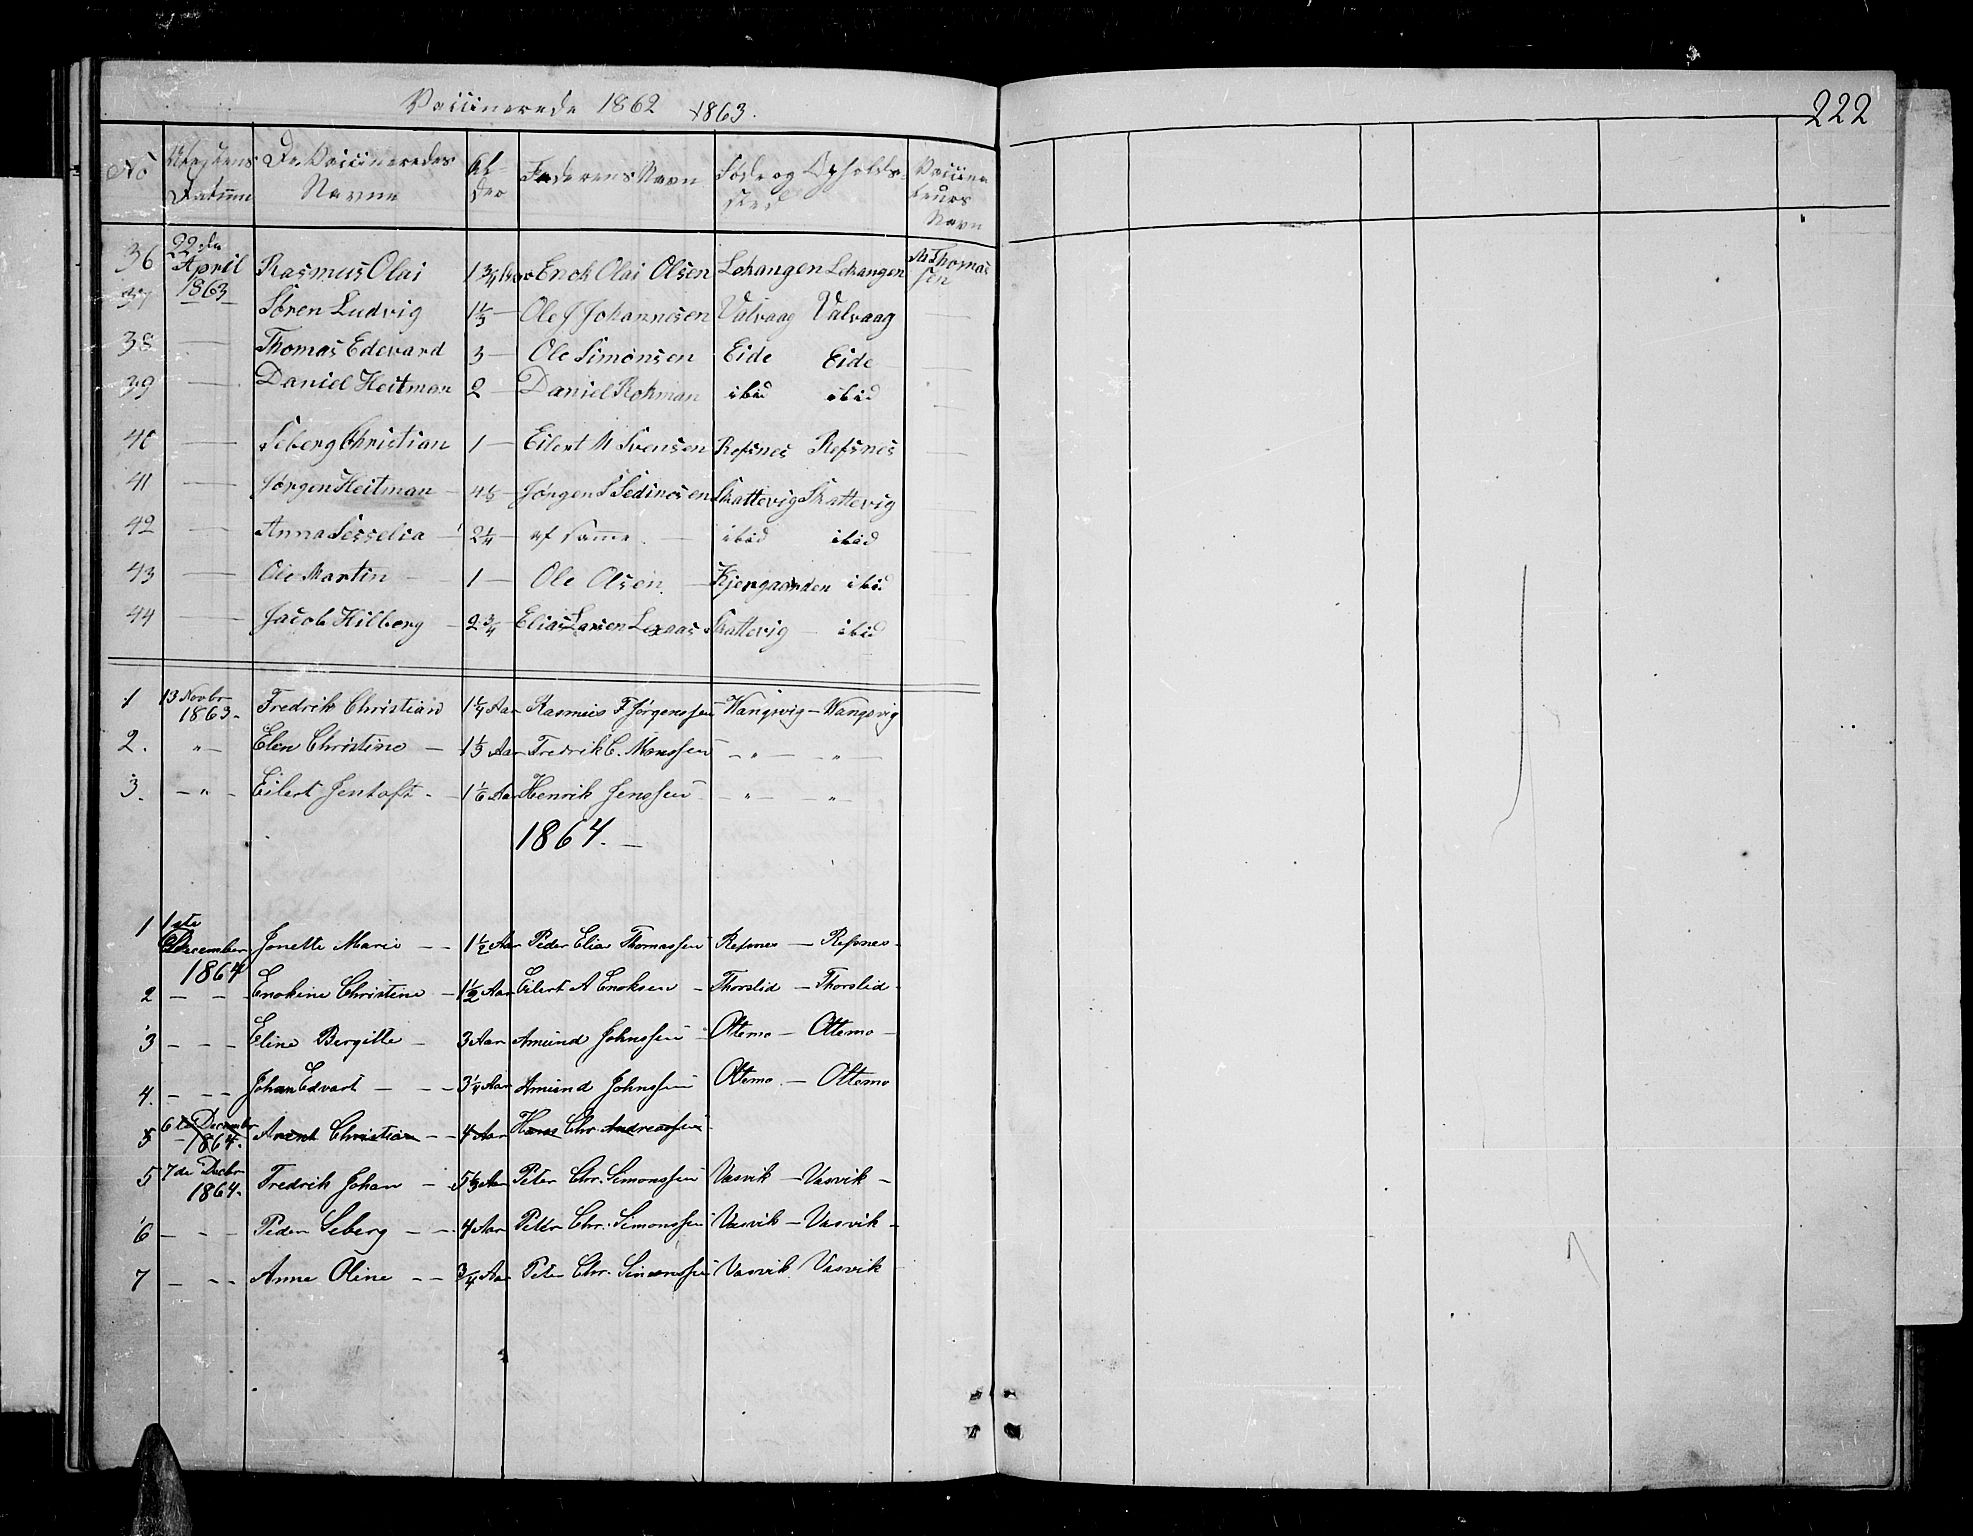 Vaccinerede 1862 1863.
222
No Attestens Datum De Vaccineredes Navne Alder Faderens Navn Føde og Opholdssted Vaccinateurs Navn
36 22de April 1863 Rasmus Olai 1 3/4 Aar Enok Olai Olsen Lekangen Lekangen M Thomassen
37 — Søren Ludvig 1 1/3 — Ole J Johannesen Valvaag Valvaag —
38 — Thomas Edevard 3 — Ole Simonsen Eide Eide —
39 — Daniel Heitman 2 — Daniel Rokman ibid ibid —
40 — Seberg Christian 1 — Eilert M Svensen Refsnes Refsnes —
41 — Jørgen Heitman — Jørgen S Sedinesen Skattevig Skattevig
42 — Anna Sesselia 2 1/4 af samme — ibid ibid —
43 — Ole Martin 1 — Ole Olsen — Kjergaarden ibid —
44 — Jacob Hilberg — 2 3/4 Elias Larsen Lexaas Skattevig — ibid —
1 13 Novbr 1863 — Fredrik Christian 1 1/4 Aar Rasmus F Jørgenssen Wangsvig — Wangsvig
2. " — Elen Christine — 1 1/3 Aar Fredrik C. Monssen — " — " —
3. — " — Eilert Jentoft — 1 1/6 Aar Henrik Jenssen — " — " —
1864. —
1 1ste December 1864 Jonette Marie — — 1 1/2 Aar Peder Elia Thomassen Refsnes — Refsnes —
2 — — Enokine Christine — 1 1/2 Aar Eilert A Enoksen — Thorslid — Thorslid —
3 — — — Eline Bergitte — 3 Aar Amund Johnssen Ottemo — Ottemo —
4. — — — Johan Edvart — — — 3 1/4 Aar Amund Johnssen Ottemo — Ottemo
5 6te Decembr 1864. Arent Christian — — 4 Aar Hans Chr. Andreassen
5 7de Decbr 1864. Fredrik Johan — 5 1/3 Aar Peter Chr. Simonssen Vasvik — Vasvik —
6 — — — Peder Seberg — — 4 Aar Peter Chr. Simonssen Vasvik — Vasvik —
7 — — — Anne Oline — — 3/4 Aar Peter Chr. Simonssen Vasvik Vasvik